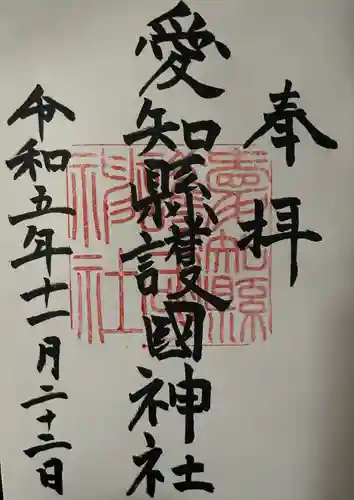 奉拝
愛知縣護國神社
令和五年十一月二十二日
愛知縣
護國
神社